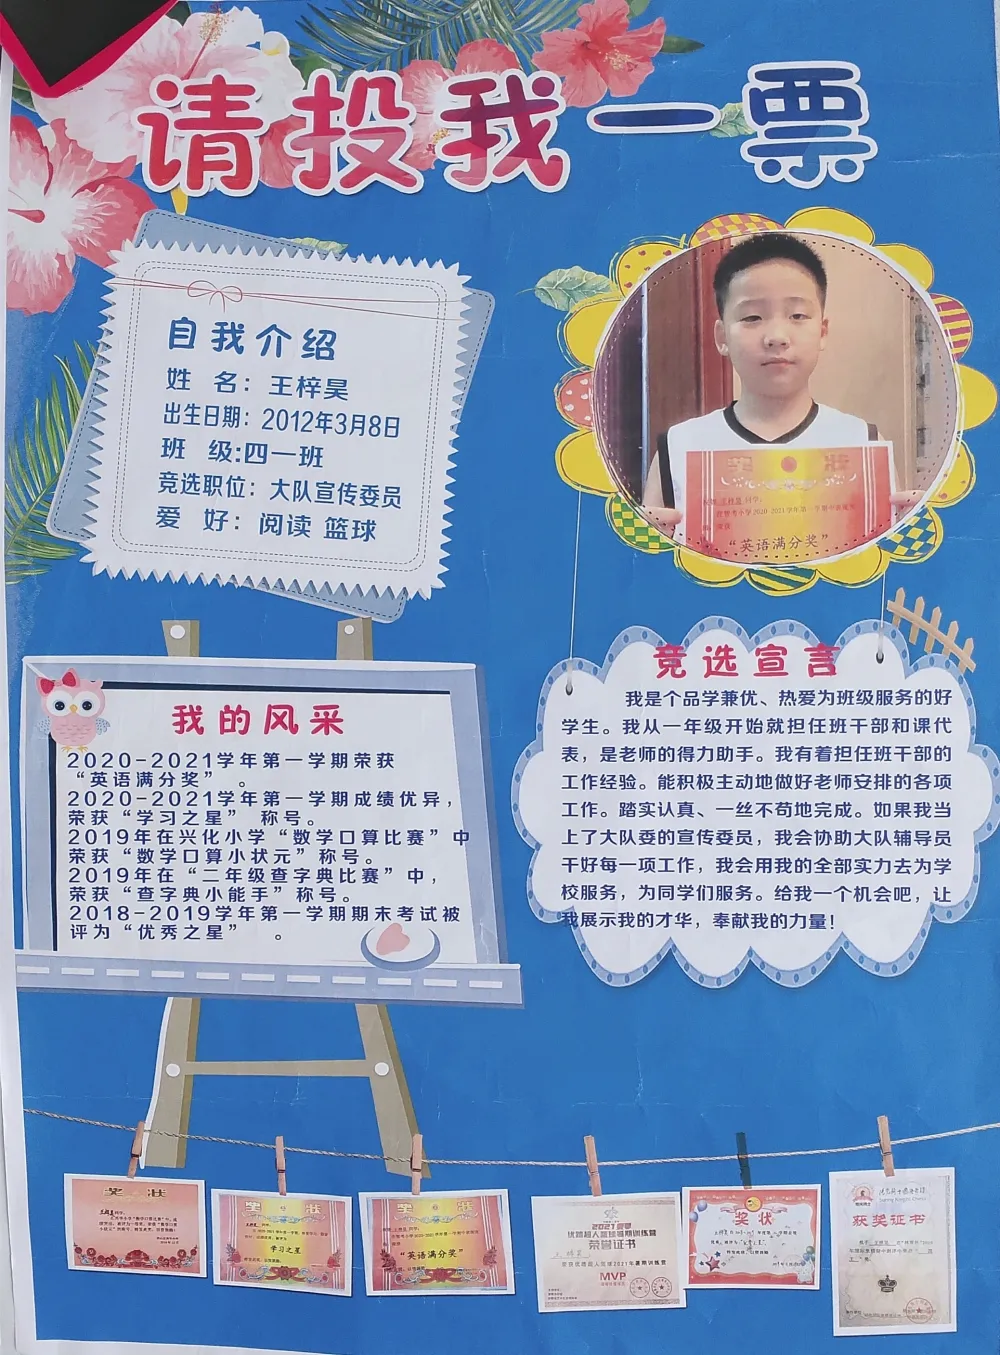 请投我一票
自我介绍
姓 名：王梓昊
出生日期：2012年3月8日
班 级:四一班
竞选职位：大队宣传委员
爱 好：阅读 篮球
奖 状
“英语满分奖”
我的风采
2020-2021学年第一学期荣获
“英语满分奖” 。
2020-2021学年第一学期成绩优异，
荣获“学习之星” 称号。
2019年在兴化小学“数学口算比赛”中
荣获“数学口算小状元”称号。
2019年在“二年级查字典比赛”中，
荣获“查字典小能手”称号。
2018-2019学年第一学期期末考试被
评为“优秀之星” 。
竞选宣言
我是个品学兼优、热爱为班级服务的好
学生。我从一年级开始就担任班干部和课代
表，是老师的得力助手。我有着担任班干部的
工作经验。能积极主动地做好老师安排的各项
工作。踏实认真、一丝不苟地完成。如果我当
上了大队委的宣传委员，我会协助大队辅导员
干好每一项工作，我会用我的全部实力去为学
校服务，为同学们服务。给我一个机会吧，让
我展示我的才华，奉献我的力量！
奖 状
奖 状
学习之星
奖 状
“英语满分奖”
荣誉证书
MVP
奖 状
获奖证书